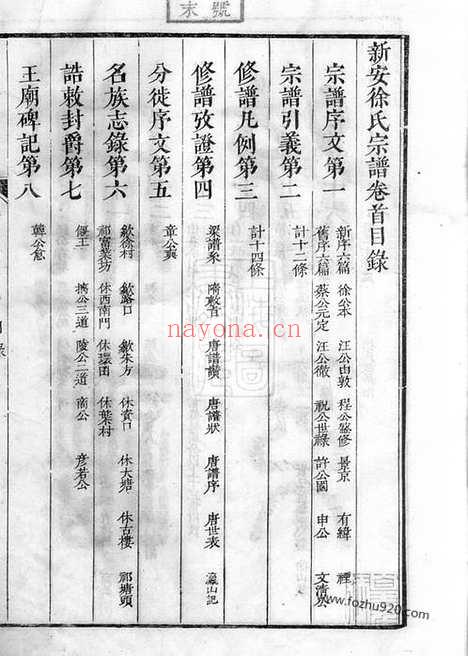 號末
新安徐氏宗譜卷首目錄
宗譜序文第一
新序六篇 徐公本 汪公由敦 程公盛修 景京 有緯 禋
舊序六篇 蔡公元定 汪公徽 祝公世祿 許公國 申公 文清公
宗譜引義第二
計十二條
修譜凡例第三
計十四條
修譜攷證第四
梁譜系 隋敕旨 唐譜讚 唐譜狀 唐譜序 唐世表 瀛山記
分徙序文第五
章公奭
名族志錄第六
歙徐村 歙路口 歙朱方 休資口 休大塘 休古樓 祁塘頭
祁富葉坊 休西南門 休環田 休葉村
誥敕封爵第七
偃王 摛公三道 陵公二道 商公 彦若公
王廟碑記第八
韓公愈
nayona.cn
www.fozhu920.com